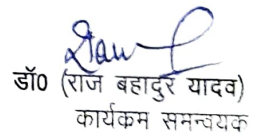 डॉ0 (राज बहादुर यादव)
कार्यकम समन्वयक